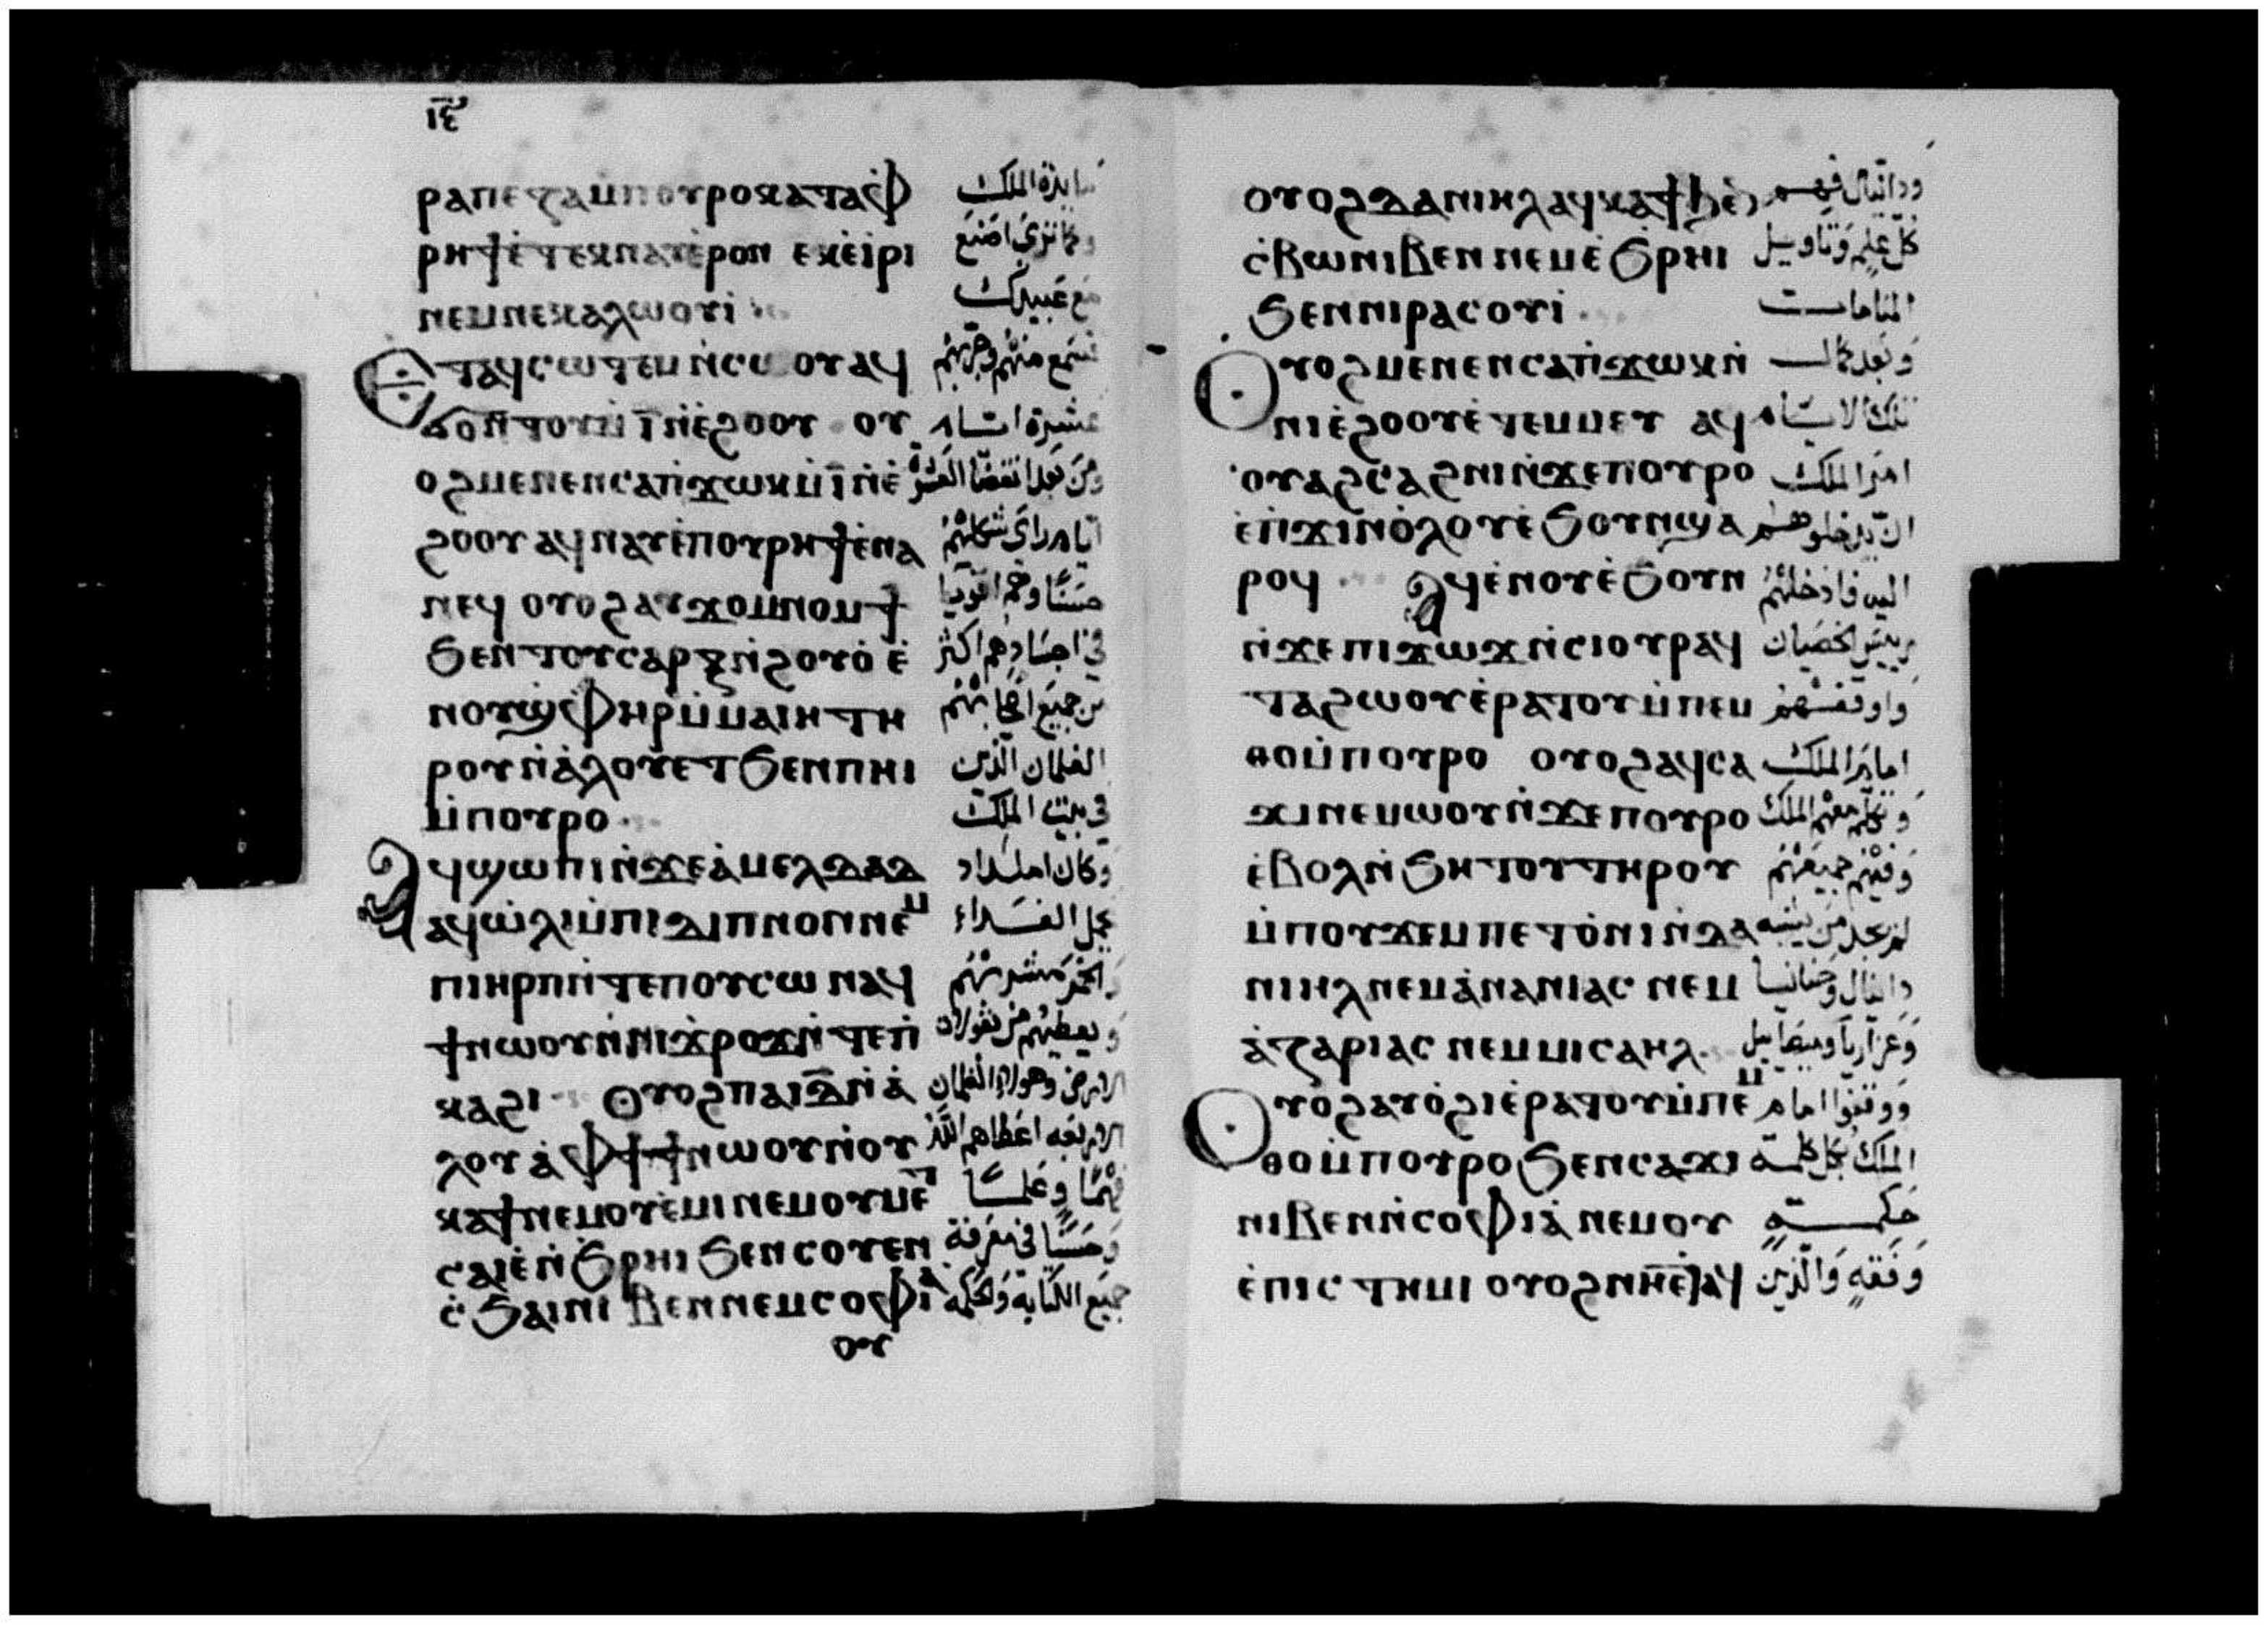 ⲓ̅ⲋ̅
ⲣⲁⲡⲉⲍⲁⲙ̇ⲡⲟⲩⲣⲟⲕⲁⲧⲁⲫ̇
ⲣⲏϯⲉ̇ⲧⲉⲕⲛⲁⲩⲉ̇ⲣⲟⲛ ⲉⲕⲉ̇ⲓ̇ⲣⲓ
ⲛⲉⲙⲛⲉⲕⲁⲗⲱⲟⲩⲓ̇
ⲉⲧⲁϥⲥⲱⲧⲉⲙⲛ̇ⲥⲱⲟⲩⲁϥ
ϭⲟⲛⲧⲟⲩⲛ̇ⲓ̅ⲛ̇ⲉ̇ϩⲟⲟⲩ ⲟⲩ
ⲟϩⲙⲉⲛⲉⲛⲥⲁⲡ̇ϫⲱⲕⲙ̇ⲓ̅ⲛ̇ⲉ̇
ϩⲟⲟⲩⲁϥⲛⲁⲩⲉ̇ⲡⲟⲩⲣⲏϯⲉ̇ⲛⲁ
ⲛⲉϥ ⲟⲩⲟϩⲁⲩϫⲟⲙⲛⲟⲙϯ
ϧⲉⲛⲧⲟⲩⲥⲁⲣⲝⲛ̇ϩⲟⲩⲟ̇ⲉ̇
ⲛⲟⲩϣ̇ⲫⲏⲣⲙ̇ⲙⲁⲓⲏ ⲧⲏ
ⲣⲟⲩⲛ̇ⲁ̇ⲗⲟⲩⲉ̇ⲧϧⲉⲛⲡⲏⲓ
ⲙ̇ⲡⲟⲩⲣⲟ
ⲁϥϣⲱⲡⲓⲛ̇ϫⲉⲁ̇ⲙⲉⲗⲇⲁⲇ
ⲁϥⲱ̇ⲗⲓⲙ̇ⲡⲓⲇⲓⲡⲛⲟⲛⲛⲉⲙ
ⲡⲓⲏⲣⲡⲛ̇ⲧⲉⲡⲟⲩⲥⲱ ⲛⲁϥ
ϯⲛⲱⲟⲩⲛ̇ⲛⲓϫ̇ⲣⲟϫⲛ̇ⲧⲉⲡ̇
ⲕⲁϩⲓ ⲟⲩⲟϩⲡⲁⲓⲇ̅ⲛ̇ⲁ̇
ⲗⲟⲩⲁ̇ⲫϯϯⲛⲱⲟⲩⲛ̇ⲟⲩ
ⲕⲁϯⲛⲉⲙⲟⲩⲉ̇ⲙⲓⲛⲉⲙⲟⲩⲙⲉⲧ
ⲥⲁⲓⲉ̇ⲛ̇ϧⲣⲏⲓ ϧⲉⲛⲥⲟⲩⲉⲛ
ⲥ̇ϧⲁⲓⲛⲓ ⲃⲉⲛⲛⲉⲙⲥⲟⲫⲓⲁ
ⲟⲩ
مايدة الملك
وكما ترى اصنع
مع عبيدك
فسمع منهم وجربهم
عشرة ايام
ومن بعد انقضا العشرة
ايام راى شكلهم
حسنًا وهم اقويا
في اجسادهم اكثر
من جميع اصحابهم
الغلمان الذين
في بيت الملك
وكان املداد
يحمل الغداء
والخمر مشربهم
ويعطيهم من بقولات
الارض وهولاء الغلمان
الاربعه اعطاهم الله
فهمًا وعلمًا
وحسنًا في معرفة
جميع الكتابة والحكمه
ⲟⲩⲟϩⲇⲁⲛⲓⲏⲗⲁϥⲕⲁϯϧⲉⲛ
ⲥ̇ⲃⲱⲛⲓⲃⲉⲛ ⲛⲉⲙⲉ̇ϧⲣⲏⲓ
ϧⲉⲛⲛⲓⲣⲁⲥⲟⲩⲓ̇
ⲟⲩⲟϩⲙⲉⲛⲉⲛⲥⲁⲡ̇ϫⲱⲕⲛ̇
ⲛⲓⲉ̇ϩⲟⲟⲩⲉ̇ⲧⲉⲙⲙⲉⲩ ⲁϥ
ⲟⲩⲁϩⲥ̇ⲁϩⲛⲓⲛ̇ϫⲉⲡⲟⲩⲣⲟ
ⲉ̇ⲡ̇ϫⲓⲛⲟ̇ⲗⲟⲩⲉ̇ϧⲟⲩⲛϣⲁ
ⲣⲟϥ ⲁϥⲉ̇ⲛⲟⲩⲉ̇ϧⲟⲩⲛ
ⲛ̇ϫⲉⲡⲓϫⲱϫⲛ̇ⲥⲓⲟⲩⲣⲁϥ
ⲧⲁϩⲱⲟⲩⲉ̇ⲣⲁⲧⲟⲩⲙ̇ⲡⲉⲙ
ⲑⲟⲙ̇ⲡⲟⲩⲣⲟ ⲟⲩⲟϩⲁϥⲥⲁ
ϫⲓⲛⲉⲙⲱⲟⲩⲛ̇ϫⲉⲡⲟⲩⲣⲟ
ⲉ̇ⲃⲟⲗⲛ̇ϧⲏⲧⲟⲩⲧⲏⲣⲟⲩ
ⲙ̇ⲡⲟⲩϫⲉⲙⲡⲉⲧⲟ̇ⲛⲓⲛ̇ⲇⲁ
ⲛⲓⲏⲗⲛⲉⲙⲁ̇ⲛⲁⲛⲓⲁⲥ ⲛⲉⲙ
ⲁ̇ⲍⲁⲣⲓⲁⲥ ⲛⲉⲙⲙⲓⲥⲁⲏⲗ
ⲟⲩⲟ̇ϩⲁⲩⲟ̇ϩⲓⲉ̇ⲣⲁⲧⲟⲩⲙ̇ⲡⲉⲙ
ⲑⲟⲙ̇ⲡⲟⲩⲣⲟϧⲉⲛⲥⲁϫⲓ
ⲛⲓⲃⲉⲛⲛ̇ⲥⲟⲫⲓⲁ̇ ⲛⲉⲙⲟⲩ
ⲉ̇ⲡⲓⲥⲧⲏⲙⲓ ⲟⲩⲟϩⲛⲏⲉ̇ⲧⲁϥ
ودانيال فهم
كل علم وتاويل
المنامات
وبعد كمال
تلك الايام
امر الملك
ان يدخلوهم
اليه فادخلهم
رييس الخصيان
واوقفهم
امام الملك
وتكلم معهم الملك
وفيهم جميعهم
لم يجد من يشبه
دانيال وحنانيا
وعزاريا وميصاييل
ووقفوا امام
الملك بكل كلمة
حكمةٍ
وفقهٍ والذين